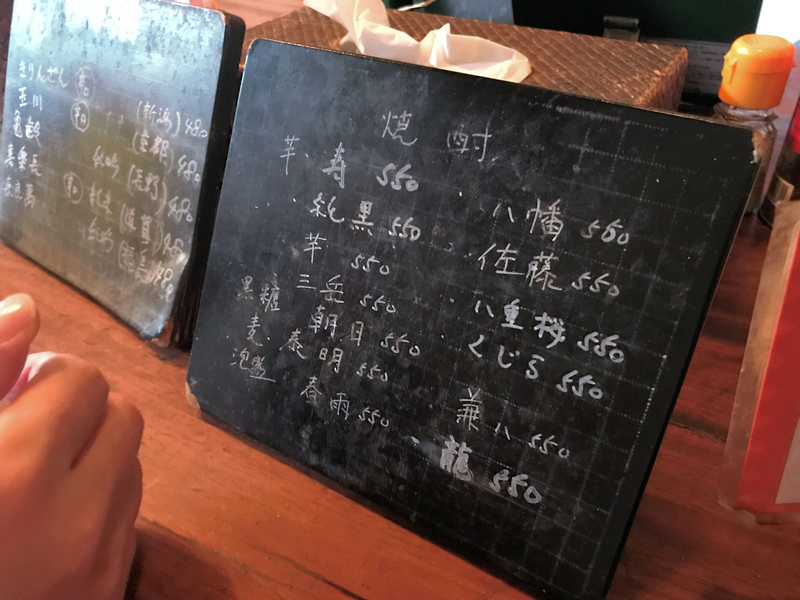 きりんざん
玉川
亀齢
喜楽長
(新潟) 480
(京都) 480
(長野) 480
(滋賀) 480
480
焼酎
芋・寿 550
・純黒 550
芋 550
三岳 550
黒糖 朝日 550
麦・泰明 550
泡盛 春雨 550
・八幡 550
・佐藤 550
・八重桜 550
・くじら 550
兼八 550
・龍 550